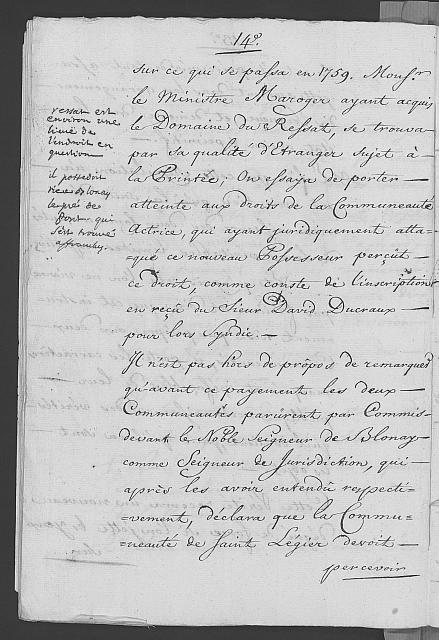 14º.
sur ce qui se passa en 1759. Mons.r
le Ministre Maroger ayant acquis
le Domaine du Ressat, se trouva
par sa qualité d'Etranger sujet à
la Printée; On essaÿa de porter
atteinte aux droits de la Communeauté
Actrice, qui ayant juridiquement atta=
=qué ce nouveau Possesseur perçût
ce droit, comme conste de l'inscription
en reçû du Sieur David Ducraux
pour lors Syndic. —
Il n'est pas hors de propos de remarquer
qu'avant ce payement les deux
Communeautés parûrent par Commis
devant le Noble Seigneur de Blonay
comme Seigneur de Jurisdiction, qui
après les avoir entendû respecti=
=vement, déclara que la Commu=
=neauté de Saint Légier devoit
percevoir
ressat est
environ une
lieuë de
l'endroit en
question
il possedoit
rière Blonay
le prés de
qui
trouvé
affranchy.